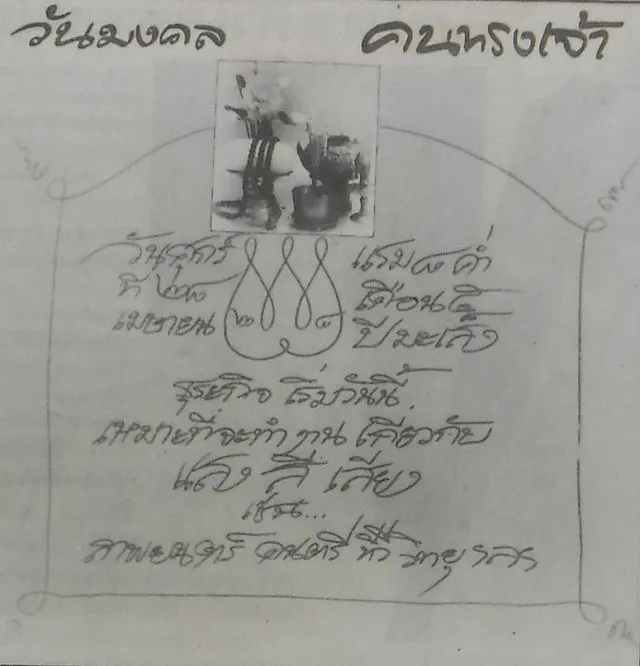 วันมงคล
คนทรงเจ้า
วันศุกร์
ที่ ๒๘
เมษายน
แรม ๘ ค่ำ
เดือน ๕
ปีมะเส็ง
๒ ๘
ธุระกิจ เริ่มวันนี้
เหมาะที่จะทำงาน เกี่ยวกับ
แสง สี เสียง
เช่น...
ภาพยนตร์ ดนตรี ทีวี วิทยุ ฯลฯ